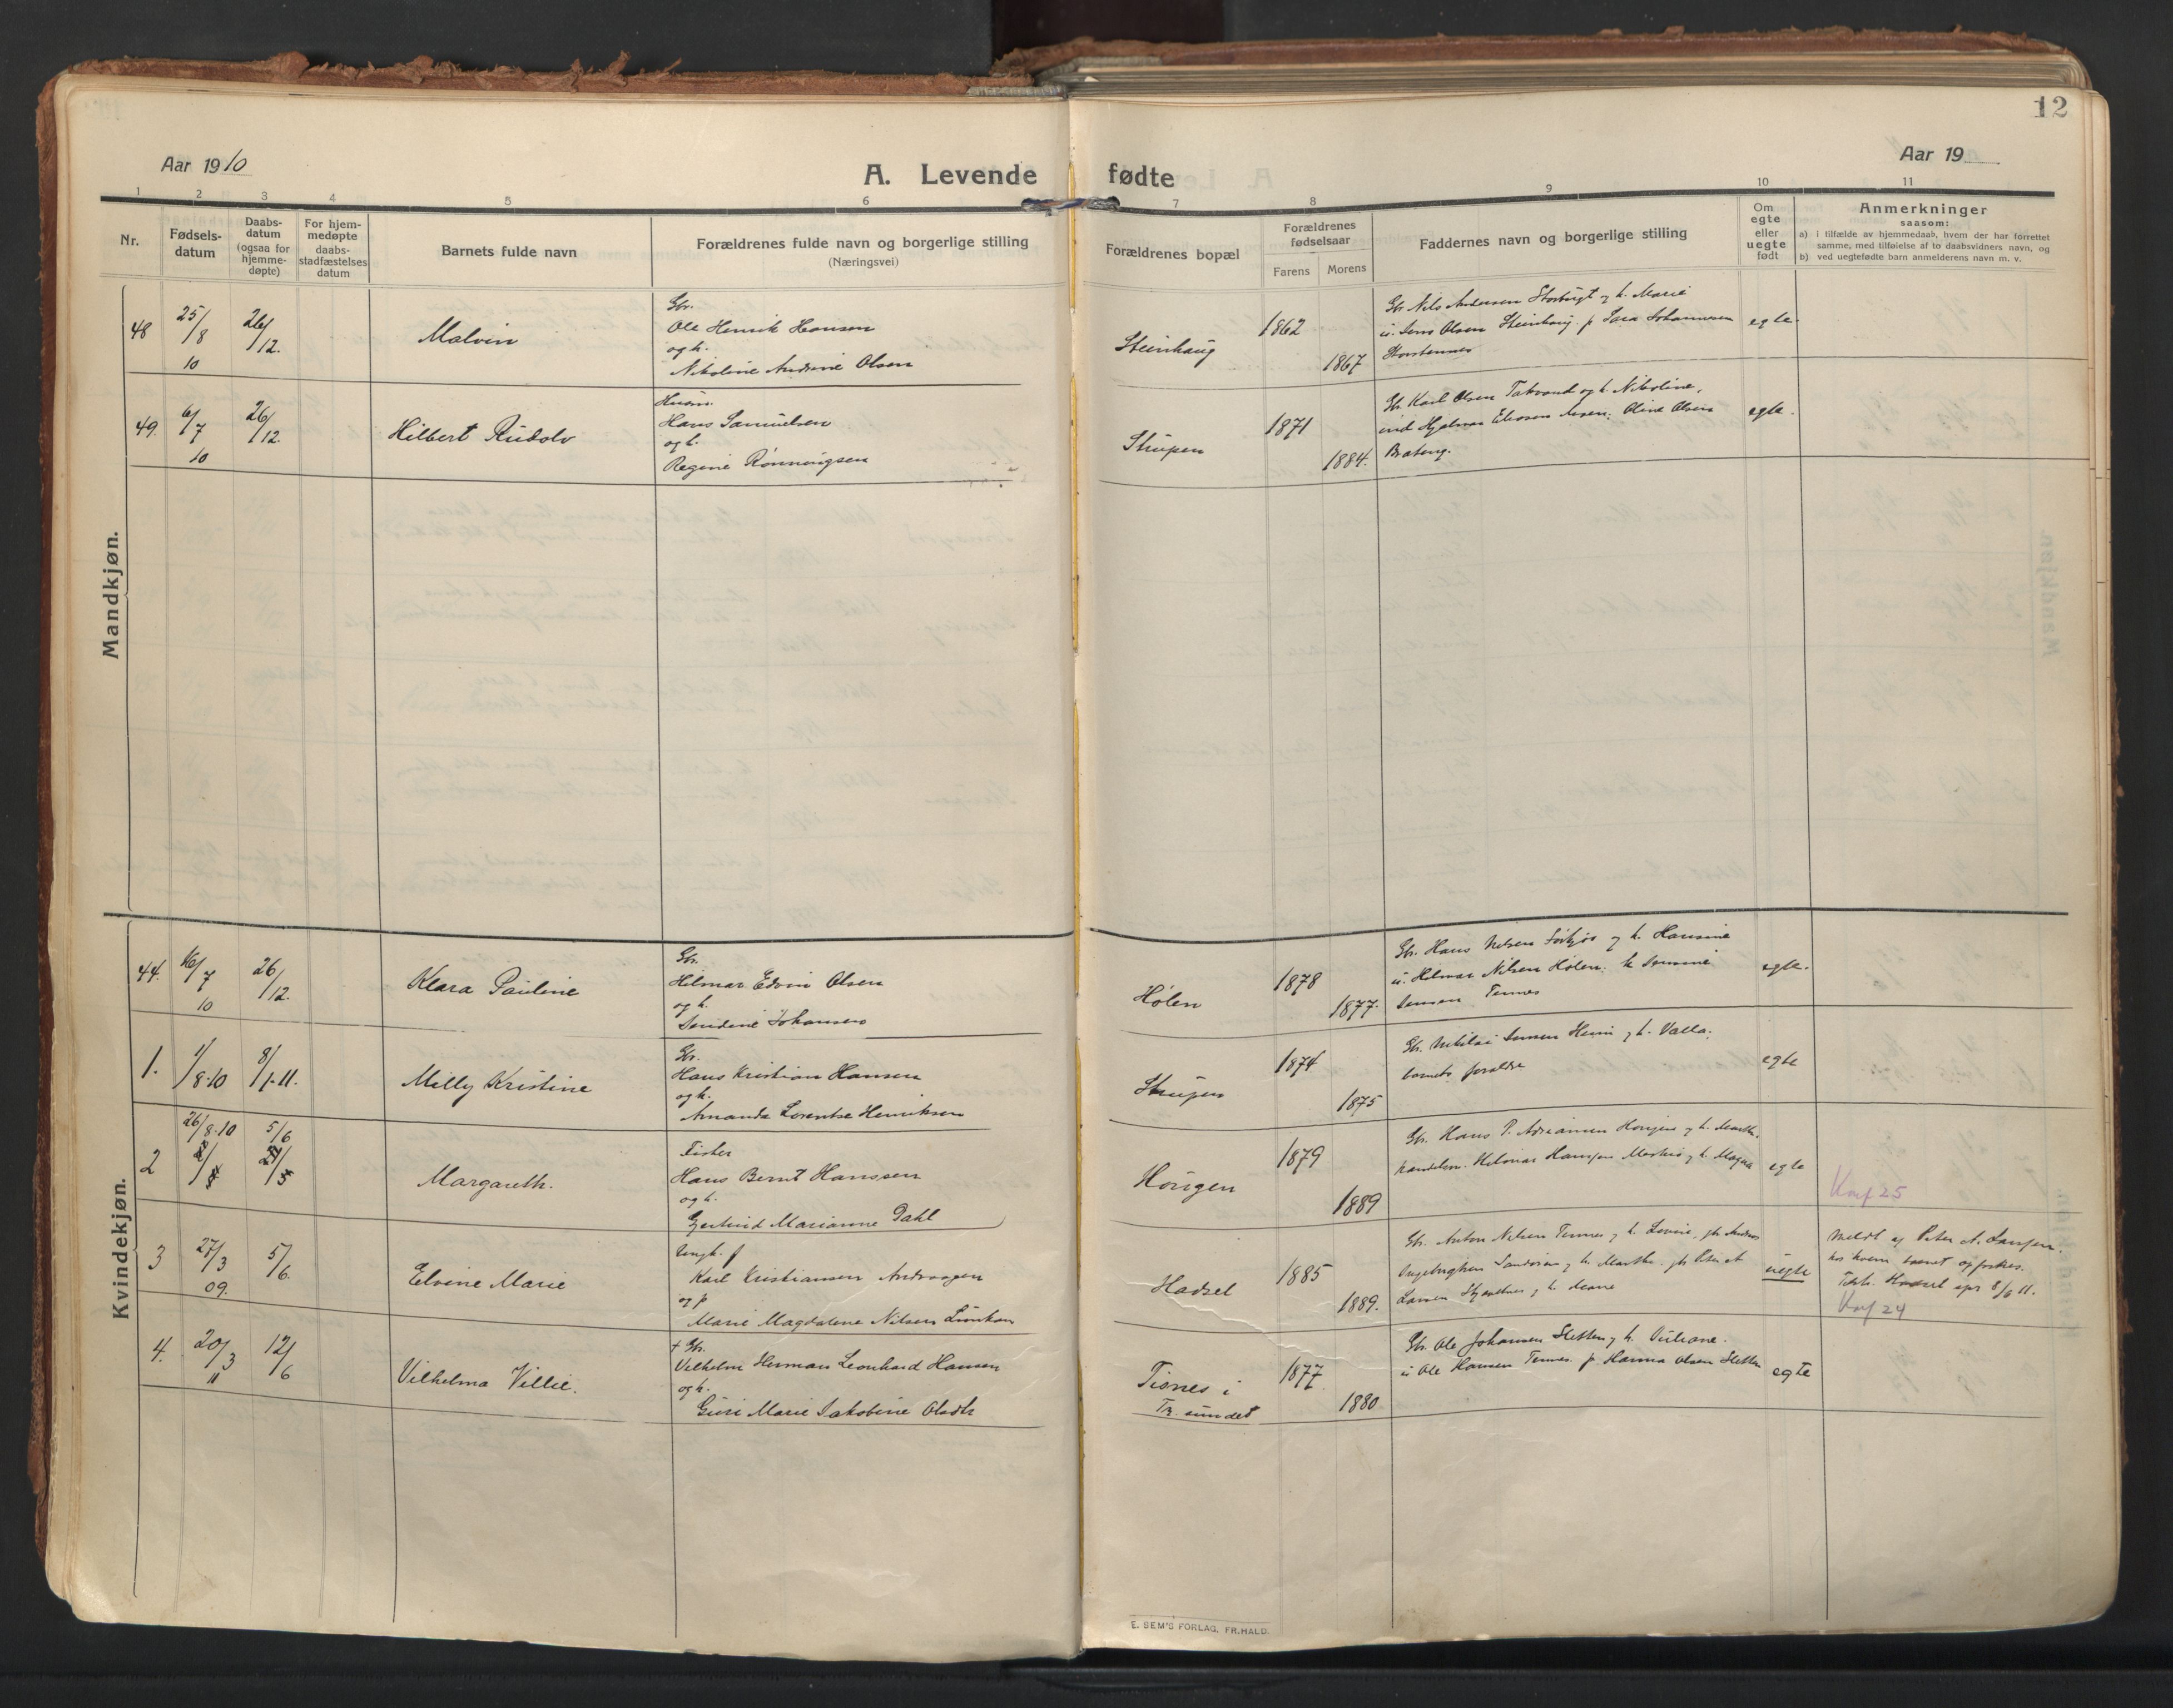 12
Aar 1910
A. Levende fødte
Aar 19
1 2 3 4 5 6 7 8 9 10 11
Nr.
Fødsels-
datum
Daabs-
datum
(ogsaa for
hjemme-
døpte)
For hjem-
medøpte
daabs-
stadfæstelses
datum
Barnets fulde navn
Forældrenes fulde navn og borgerlige stilling
(Næringsvei)
Forældrenes bopæl
Forældrenes
fødselsaar
Farens Morens
Faddernes navn og borgerlige stilling
Om
egte
eller
uegte
født
Anmerkninger
saasom:
a) i tilfælde av hjemmedaab, hvem der har forrettet
samme, med tilføielse af to daabsvidners navn, og
b) ved uegtefødte barn anmelderens navn m. v.
Mandkjøn.
48 25/8 10 26/12. Malvin
Gbr.
Ole Henrik Hansen
og h.
Nikoline Andrine Olsen
Steinhaug 1862 1867
Gb. Nils Andersen Storbugt og h. Marie
u. Jens Olsen Steinhaug. p Sara Johannesen
Storstennes
egte.
49. 6/7 10 26/12. Hilbert Rudolv
Husm.
Hans Samuelsen
og h.
Regine Rønningsen
Strupen 1871 1884.
Gb. Karl Olsen Takvand og h. Nikoline,
Hjalmar Oline Olsen
egte.
Kvindekjøn.
44. 16/7 10 26/12. Klara Pauline
Gbr.
Hilmar Edvin Olsen
og h.
Johansen
Hølen 1878 1877.
Gb. Hans Nilsen og h. Hansine
u. Hilmar Nilsen Hølen.
Jensen Tennes
egte.
1. 1/8.10 8/1.11. Milly Kristine
Gbr.
Hans Kristian Hansen
og h.
Amanda Lorentse Henriksen
Strupen 1874 1875
Gb. Nikolai Jensen og h. Valla.
barnets forældre
egte
2 26/8.10 5/6 Margareth.
Fisker
Hans Bernt Hanssen
og h.
Gjertrud Marianne Dahl
Høugen 1879 1889
Gb. Hans P. Adriansen og h.
Hilmar og h. Magna
egte
Konf 25
3 27/3 09. 5/6. Elvine Marie
Ungk. f
Karl Kristiansen Andvaagen
og p
Marie Magdalene Nilsen
Hadsel 1885 1889.
Gb. Anton Nilsen Tennes og h.
og h. Marthe.
Larsen og h.
uegte
Meldt af Peter A.
hos hvem barnet opfostres.
8/6 11.
Konf 24
4. 20/3 11 12/6 Vilhelma Villie.
† Gbr.
Vilhelm Herman Leonhard Hansen
og h.
Guri Marie Jakobine Olsdtr
Tisnes i
Tr. sundet 1877 1880
Gb. Ole Johansen Sletten og h. Juliane.
u Ole Hansen Tennes. p Hanna Olsen Sletten
egte
E. SEM'S FORLAG, FR.HALD.